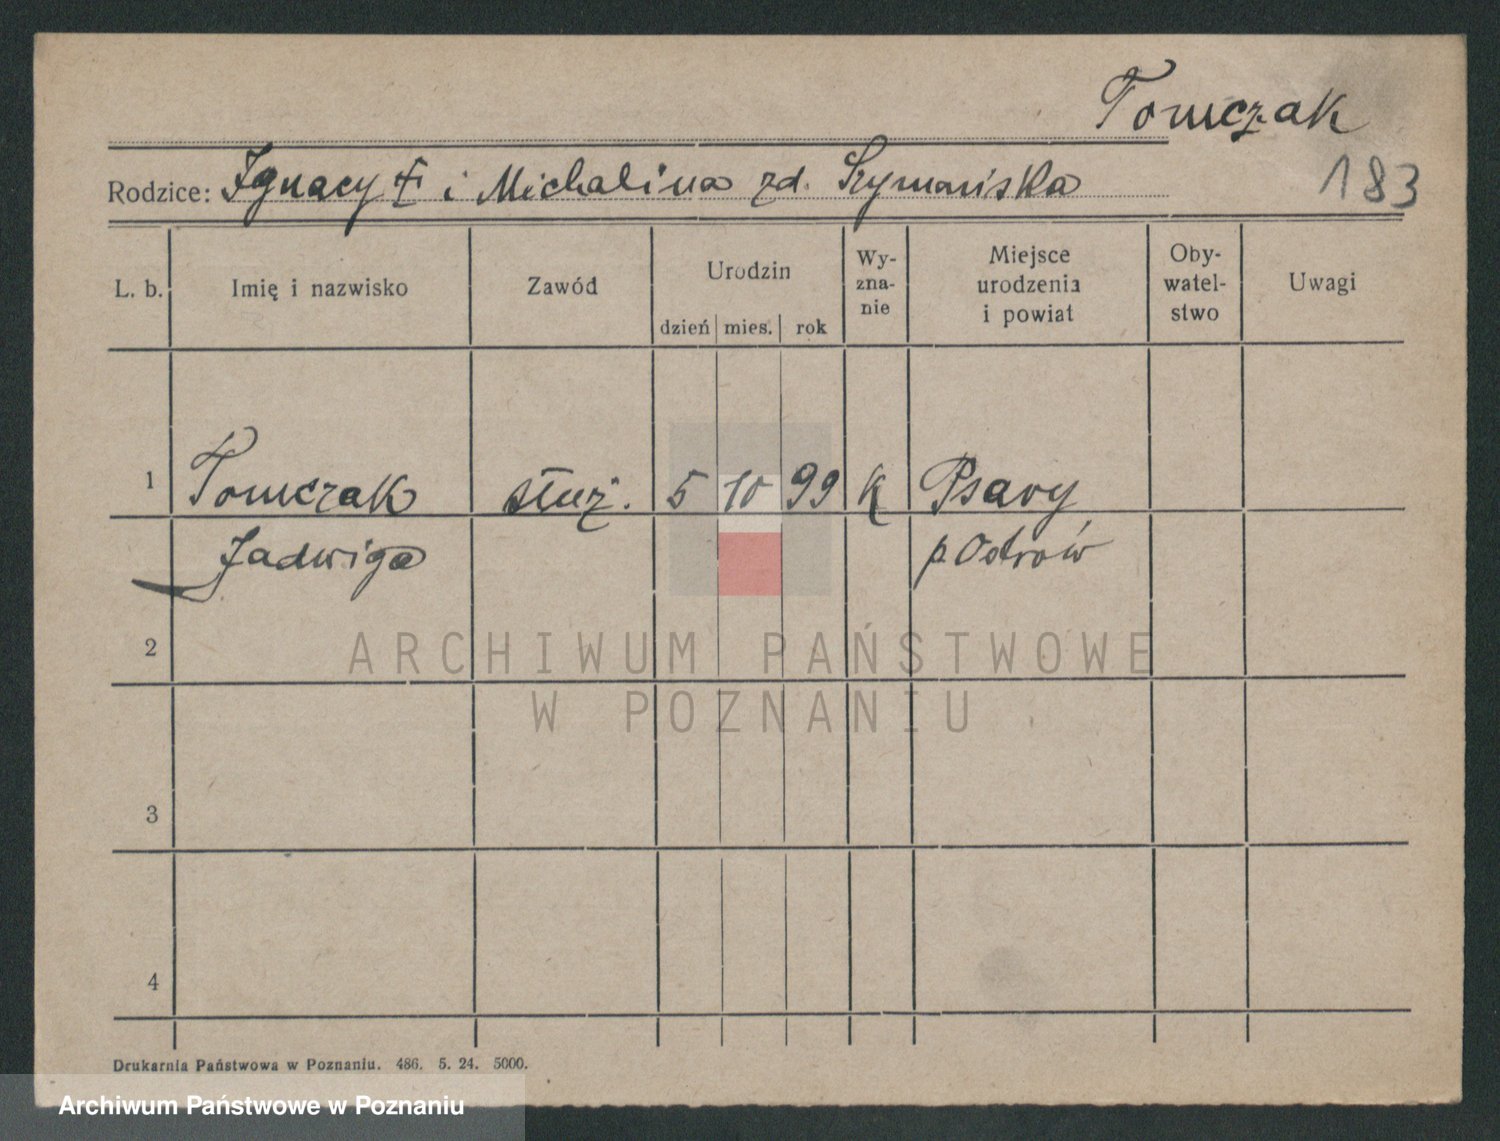 Tomczak
Rodzice: Ignacy † i Michalina zd. Szymańska
183
L. b. Imię i nazwisko Zawód Urodzin dzień mies. rok Wy-zna-nie Miejsce urodzenia i powiat Oby-watel-stwo Uwagi
1 Tomczak służ. 5 10 99 k Psary
Jadwiga p Ostrów
2
ARCHIWUM PAŃSTWOWE
W POZNANIU
3
4
Drukarnia Państwowa w Poznaniu. 486. 5. 24. 5000.
Archiwum Państwowe w Poznaniu